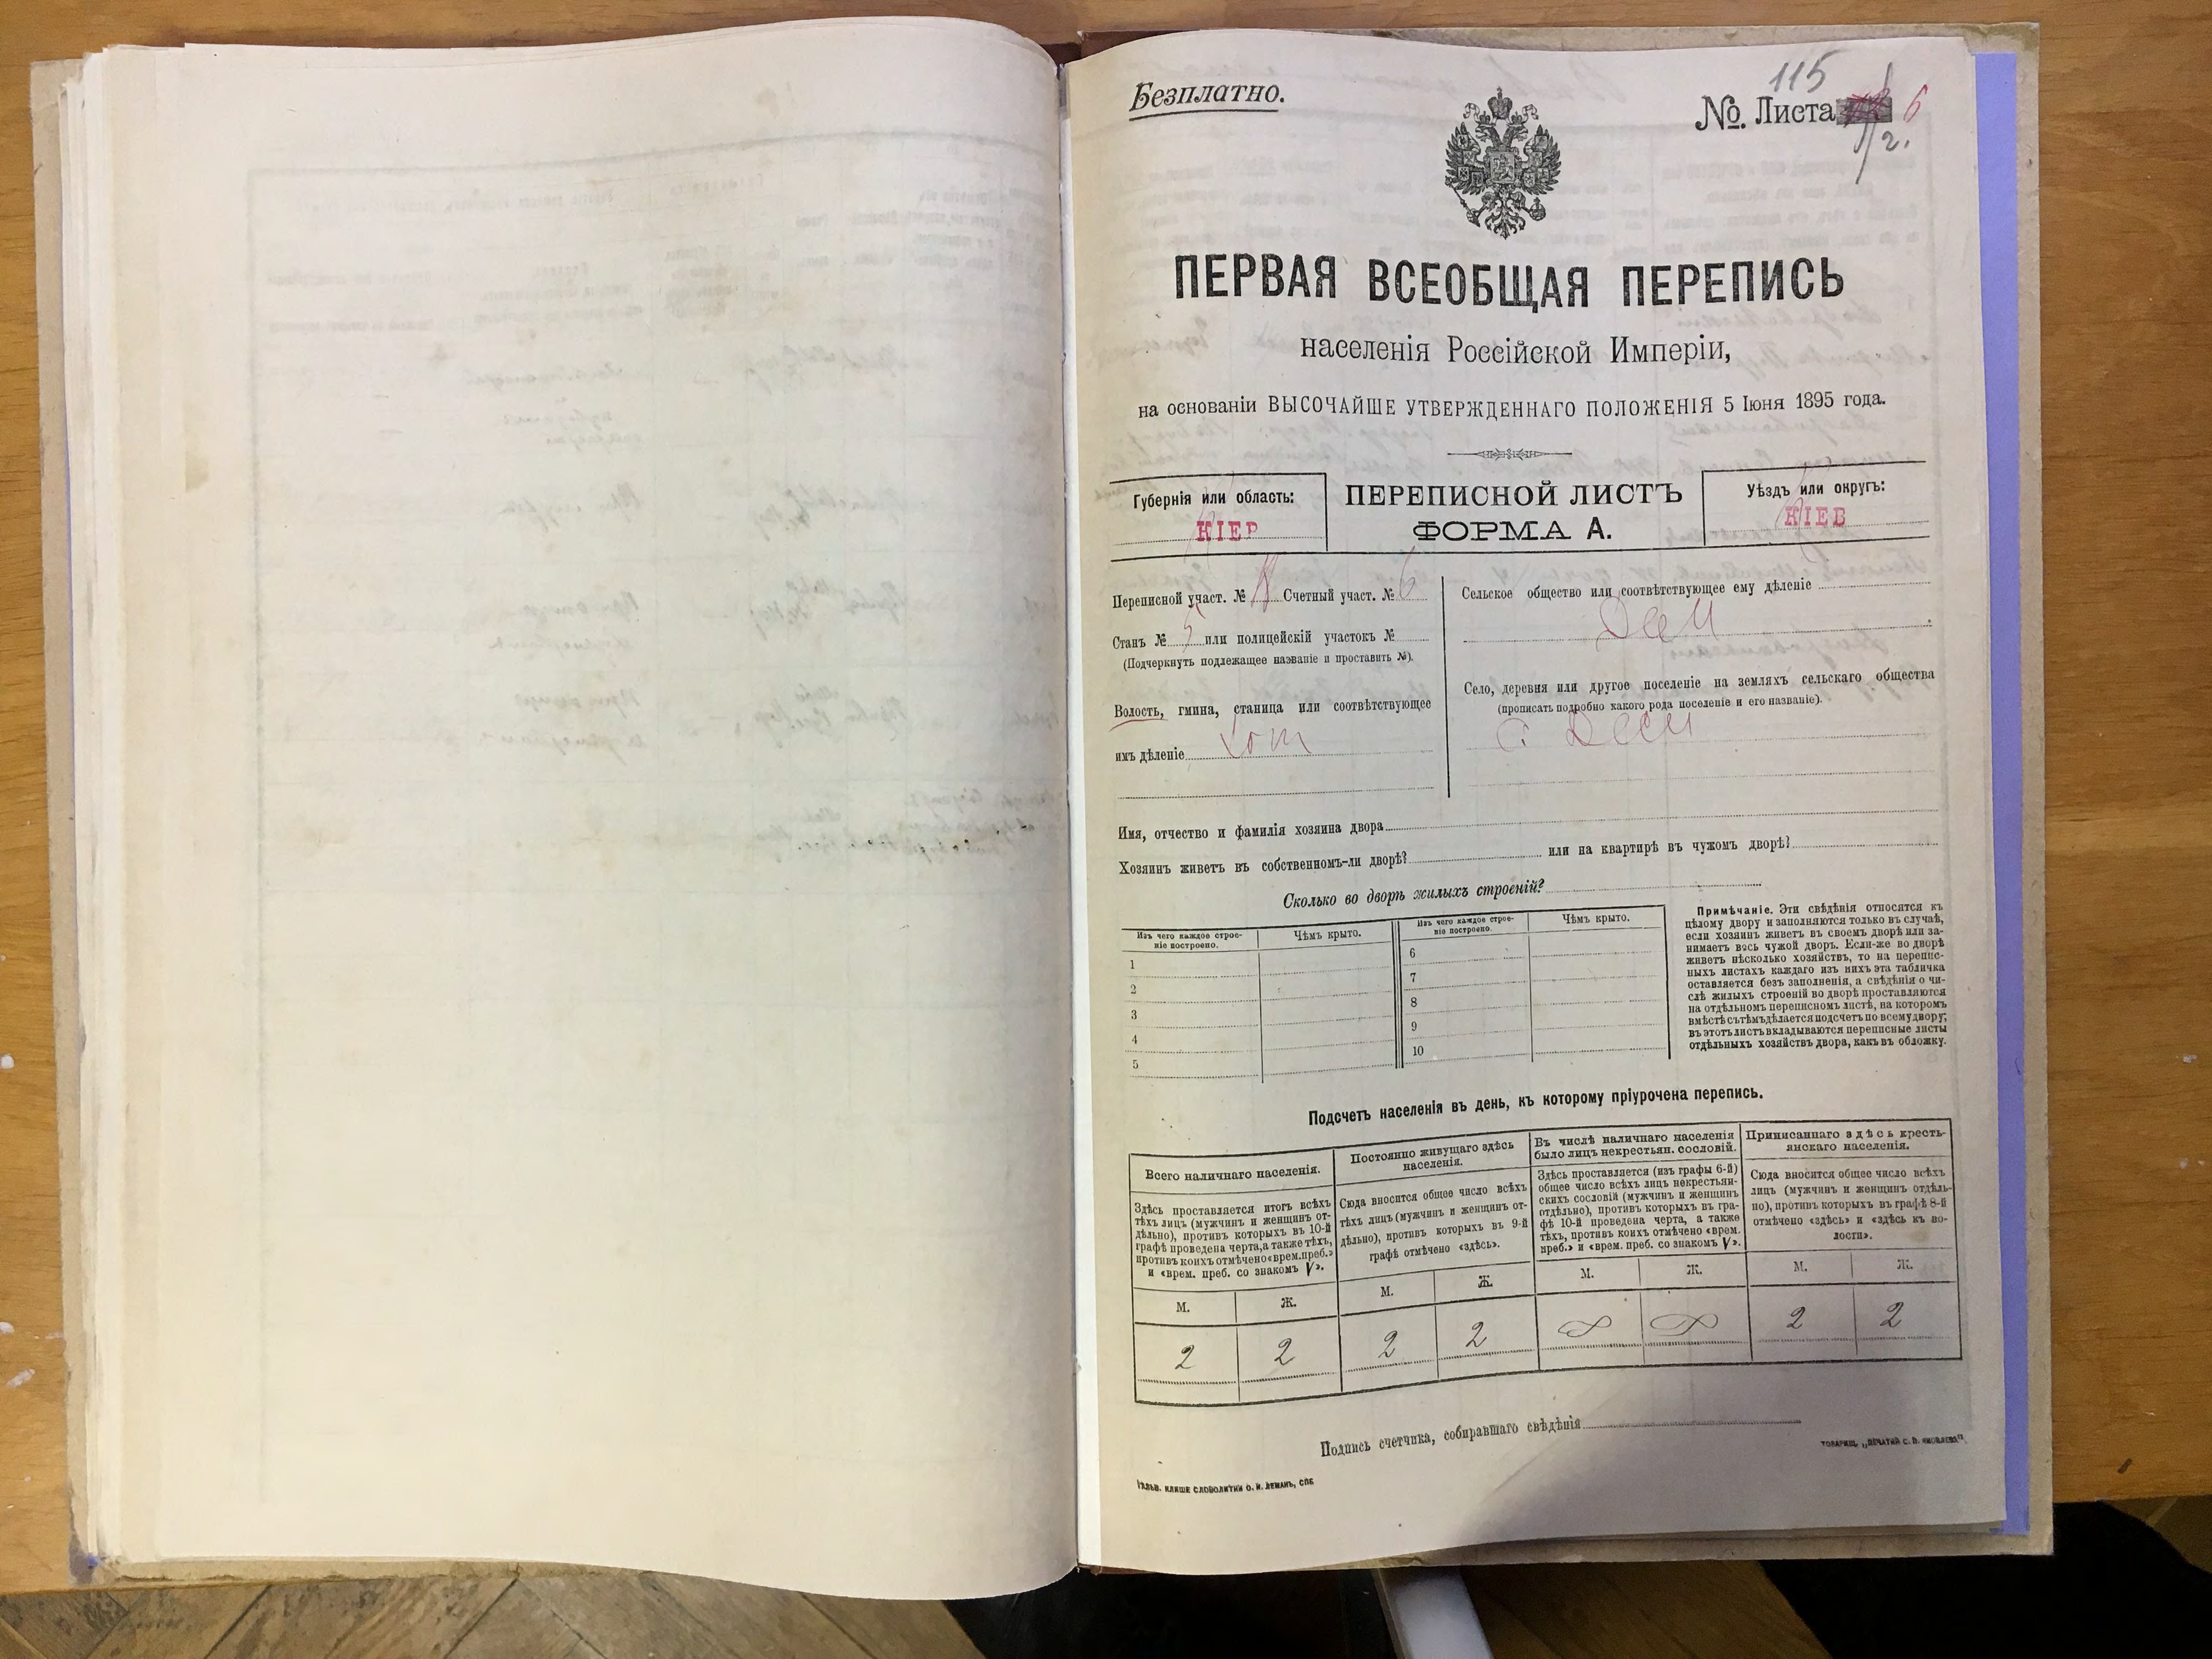 Безплатно.
115
№ Листа 6
2.
ПЕРВАЯ ВСЕОБЩАЯ ПЕРЕПИСЬ
населенія Россійской Имперіи,
на основаніи ВЫСОЧАЙШЕ УТВЕРЖДЕННАГО ПОЛОЖЕНІЯ 5 Іюня 1895 года.
Губернія или область:
КІЕР
ПЕРЕПИСНОЙ ЛИСТЪ
ФОРМА А.
Уѣздъ или округъ:
КІЕВ
Переписной участ. № Счетный участ. № 6
Станъ № 5 или полицейскій участокъ №
(Подчеркнуть подлежащее названіе и проставить №).
Волость, гмина, станица или соотвѣтствующее
имъ дѣленіе Хот
Сельское общество или соотвѣтствующее ему дѣленіе
Село, деревня или другое поселеніе на земляхъ сельскаго общества
(прописать подробно какого рода поселеніе и его названіе).
с.
Имя, отчество и фамилія хозяина двора
Хозяинъ живетъ въ собственномъ-ли дворѣ? или на квартирѣ въ чужомъ дворѣ?
Сколько во дворѣ жилыхъ строеній?
Изъ чего каждое строе-
ніе построено.
Чѣмъ крыто.
1
2
3
4
5
Изъ чего каждое строе-
ніе построено.
Чѣмъ крыто.
6
7
8
9
10
Примѣчаніе. Эти свѣдѣнія относятся къ
цѣлому двору и заполняются только въ случаѣ,
если хозяинъ живетъ въ своемъ дворѣ или за-
нимаетъ весь чужой дворъ. Если-же во дворѣ
живетъ нѣсколько хозяйствъ, то на перепис-
ныхъ листахъ каждаго изъ нихъ эта табличка
оставляется безъ заполненія, а свѣдѣнія о чи-
слѣ жилыхъ строеній во дворѣ проставляются
на отдѣльномъ переписномъ листѣ, на которомъ
вмѣстѣ съ тѣмъ дѣлается подсчетъ по всему двору;
въ этотъ листъ вкладываются переписные листы
отдѣльныхъ хозяйствъ двора, какъ въ обложку.
Подсчетъ населенія въ день, къ которому пріурочена перепись.
Всего наличнаго населенія.
Здѣсь проставляется итогъ всѣхъ
тѣхъ лицъ (мужчинъ и женщинъ от-
дѣльно), противъ которыхъ въ 10-й
графѣ проведена черта, а также тѣхъ,
противъ коихъ отмѣчено «врем. преб.»
и «врем. преб. со знакомъ V».
М. Ж.
2 2
Постоянно живущаго здѣсь
населенія.
Сюда вносится общее число всѣхъ
тѣхъ лицъ (мужчинъ и женщинъ от-
дѣльно), противъ которыхъ въ 9-й
графѣ отмѣчено «здѣсь».
М. Ж.
2 2
Въ числѣ наличнаго населенія
было лицъ некрестьян. сословій.
Здѣсь проставляется (изъ графы 6-й)
общее число всѣхъ лицъ некрестьян-
скихъ сословій (мужчинъ и женщинъ
отдѣльно), противъ которыхъ въ гра-
фѣ 10-й проведена черта, а также
тѣхъ, противъ коихъ отмѣчено «врем.
преб.» и «врем. преб. со знакомъ V».
М. Ж.
Приписаннаго здѣсь кресть-
янскаго населенія.
Сюда вносится общее число всѣхъ
лицъ (мужчинъ и женщинъ отдѣль-
но), противъ которыхъ въ графѣ 8-й
отмѣчено «здѣсь» и «здѣсь къ во-
лости».
М. Ж.
2 2
Подпись счетчика, собиравшаго свѣдѣнія
ТОВАРИЩ. „ПЕЧАТНЯ С. П. ЯКОВЛЕВА".
ГАЛЬВ. КЛИШЕ СЛОВОЛИТНИ О. И. ЛЕМАНЪ, СПБ